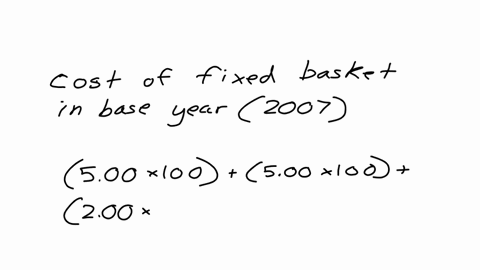 cost of fixed basket
in base year (2007)
(5.00 ×100) + (5.00 ×100) +
(2.00 ×